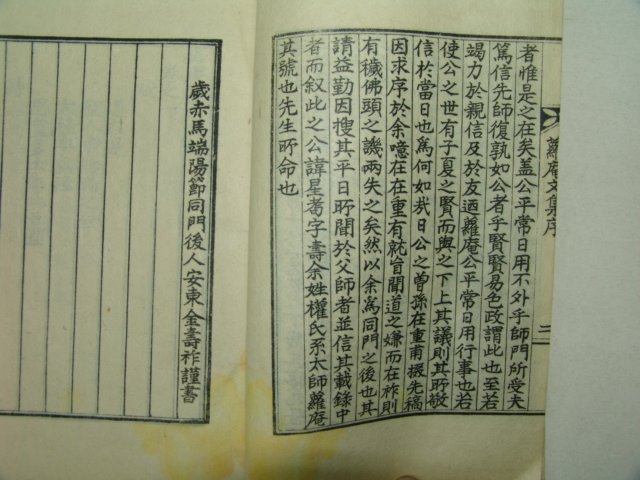 蘿庵文集序
二
者惟是之在矣盖公平常日用不外乎師門所受夫
篤信先師復孰如公者乎賢賢易色政謂此也至若
竭力於親信及於友迺蘿庵公平常日用行事也若
使公之世有子夏之賢而與之下上其議則其所敬
信於當日也爲何如哉日公之曾孫在重甫掇先稿
因求序於余噫在在重有就旨聞道之嫌而在祚則
有穢佛頭之譏兩失之矣然以余爲同門之後也其
請益勤因搜其平日所聞於父師者並信其載錄中
者而叙此之公諱星耈字壽余姓權氏系太師蘿庵
其號也先生所命也
歲赤馬端陽節同門後人安東金壽祚謹書